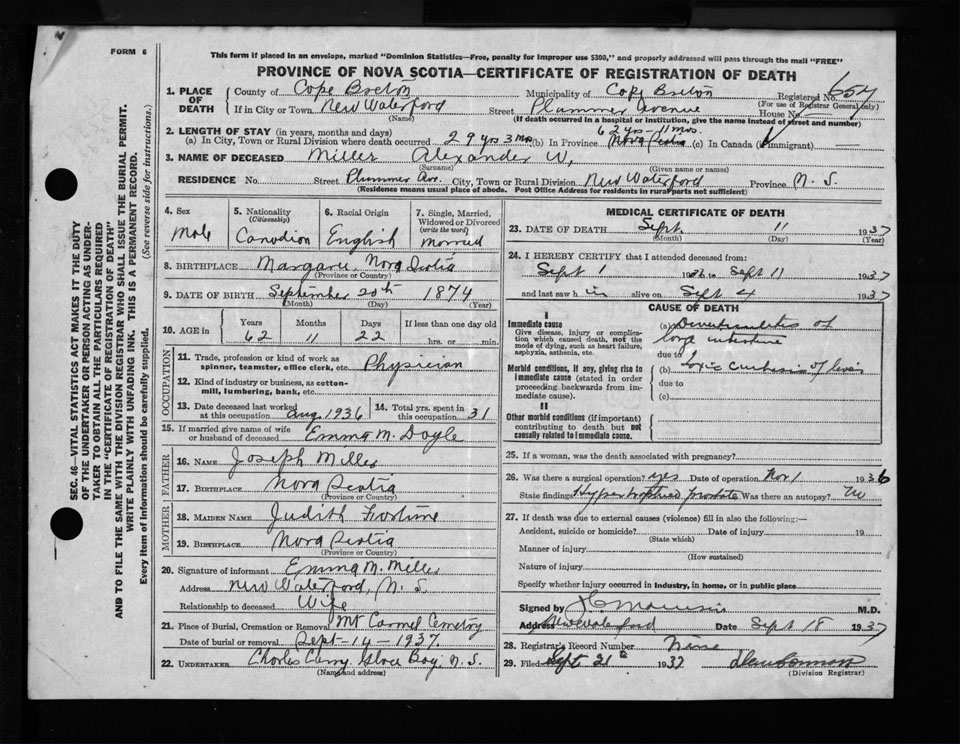 FORM 6
This form if placed in an envelope, marked "Dominion Statistics—Free, penalty for improper use $300," and properly addressed will pass through the mail "FREE"
PROVINCE OF NOVA SCOTIA—CERTIFICATE OF REGISTRATION OF DEATH
SEC. 46—VITAL STATISTICS ACT MAKES IT THE DUTY
OF THE UNDERTAKER OR PERSON ACTING AS UNDER-
TAKER TO OBTAIN ALL THE PARTICULARS REQUIRED
IN THE "CERTIFICATE OF REGISTRATION OF DEATH"
AND TO FILE THE SAME WITH THE DIVISION REGISTRAR WHO SHALL ISSUE THE BURIAL PERMIT.
WRITE PLAINLY WITH UNFADING INK. THIS IS A PERMANENT RECORD.
Every item of information should be carefully supplied. (See reverse side for instructions.)
1. PLACE OF DEATH
County of Cape Breton Municipality of Cape Breton Registered No. 654
(For use of Registrar General only)
If in City or Town New Waterford Street Plummer Avenue House No. —
(Name) (If death occurred in a hospital or institution, give the name instead of street and number)
2. LENGTH OF STAY (in years, months and days) 62 yrs - 11 mos.
(a) In City, Town or Rural Division where death occurred 29 yrs 3 mos (b) In Province Nova Scotia (c) In Canada (if immigrant) —
3. NAME OF DECEASED Miller Alexander W.
(Surname) (Given name or names)
RESIDENCE No. Street Plummer Ave. City, Town or Rural Division New Waterford Province N. S.
(Residence means usual place of abode. Post Office Address for residents in rural parts not sufficient)
4. Sex Male
5. Nationality (Citizenship) Canadian
6. Racial Origin English
7. Single, Married, Widowed or Divorced (write the word) Married
8. BIRTHPLACE Margaree, Nova Scotia
(Province or Country)
9. DATE OF BIRTH September 20th 1874
(Month) (Day) (Year)
10. AGE in Years 62 Months 11 Days 22 If less than one day old hrs. or min.
OCCUPATION
11. Trade, profession or kind of work as spinner, teamster, office clerk, etc. Physician
12. Kind of industry or business, as cotton-mill, lumbering, bank, etc.
13. Date deceased last worked at this occupation Aug. 1936
14. Total yrs. spent in this occupation 31
15. If married give name of wife or husband of deceased Emma M. Doyle
FATHER
16. NAME Joseph Miller
17. BIRTHPLACE Nova Scotia
(Province or Country)
MOTHER
18. MAIDEN NAME Judith
19. BIRTHPLACE Nova Scotia
(Province or Country)
20. Signature of informant Emma M. Miller
Address New Waterford, N. S.
Relationship to deceased Wife
21. Place of Burial, Cremation or Removal Mt Carmel Cemetry
Date of burial or removal Sept - 14 - 1937.
22. UNDERTAKER Charles Curry, Glace Bay, N. S.
(Name and address)
MEDICAL CERTIFICATE OF DEATH
23. DATE OF DEATH Sept. 11 1937
(Month) (Day) (Year)
24. I HEREBY CERTIFY that I attended deceased from:
Sept 1 1936 to Sept 11 1937
and last saw him alive on Sept 4 1937
CAUSE OF DEATH
I
Immediate cause
Give disease, injury or complication which caused death, not the mode of dying, such as heart failure, asphyxia, asthenia, etc.
(a) Diverticulitis of
large intestine
due to
Morbid conditions, if any, giving rise to immediate cause (stated in order proceeding backwards from immediate cause).
(b) Toxic Cirrhosis of liver
due to
(c)
II
Other morbid conditions (if important) contributing to death but not causally related to immediate cause.
25. If a woman, was the death associated with pregnancy?
26. Was there a surgical operation? yes Date of operation Nov 1 1936
State findings Hypertrophied prostate Was there an autopsy? No
27. If death was due to external causes (violence) fill in also the following:—
Accident, suicide or homicide? Date of injury 19
(State which)
Manner of injury
(How sustained)
Nature of injury
Specify whether injury occurred in industry, in home, or in public place
Signed by M.D.
Address New Waterford Date Sept 18 1937
28. Registrar's Record Number Nine
29. Filed Sept 21st 1937
(Division Registrar)